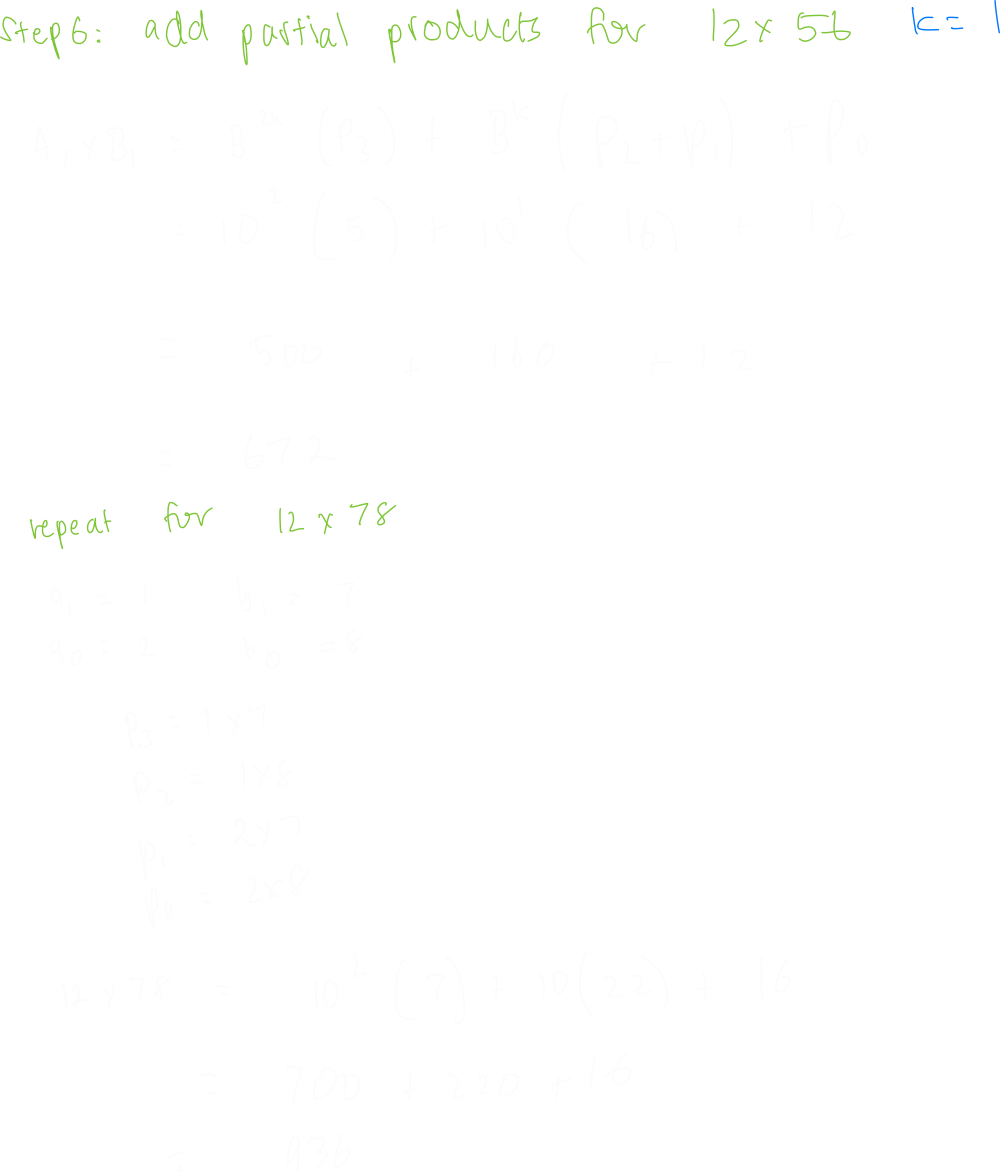 Step 6: add partial products for 12 x 56 k = 1
A₁ x B₁ = B²ᵏ (P₃) + Bᵏ (P₂ + P₁) + P₀
= 10² (5) + 10¹ (16) + 12
= 500 + 160 + 12
= 672
repeat for 12 x 78
a₁ = 1 b₁ = 7
a₀ = 2 b₀ = 8
P₃ = 1 x 7
P₂ = 1 x 8
P₁ = 2 x 7
P₀ = 2 x 8
12 x 78 = 10² (7) + 10 (22) + 16
= 700 + 220 + 16
= 936